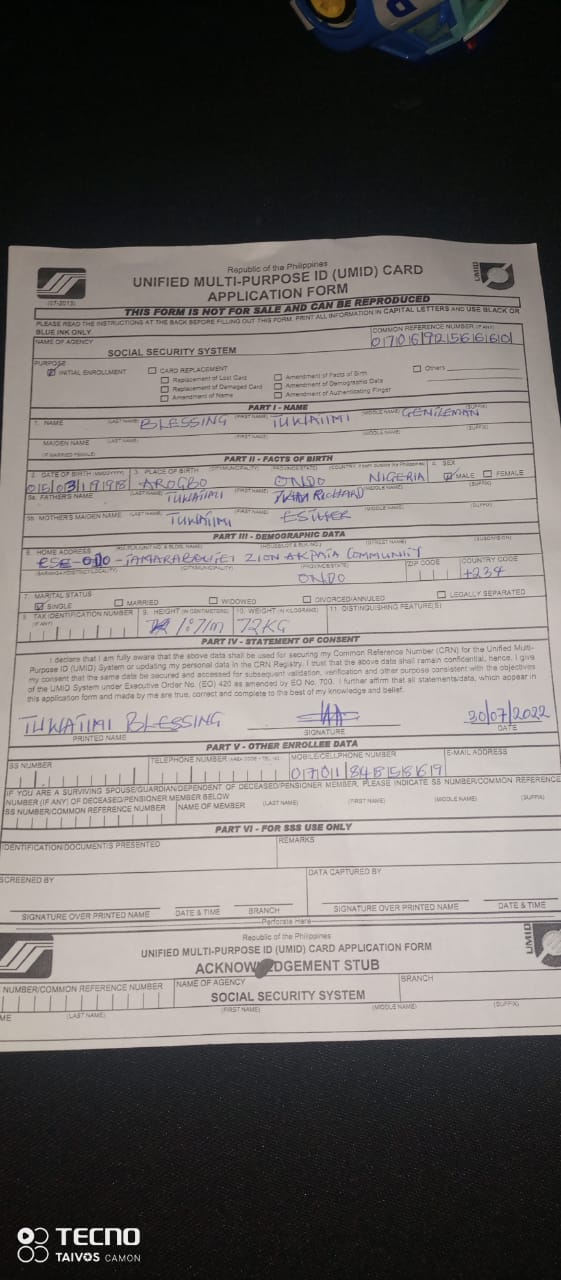 Republic of the Philippines
UNIFIED MULTI-PURPOSE ID (UMID) CARD
APPLICATION FORM
(07-2013)
UMID
THIS FORM IS NOT FOR SALE AND CAN BE REPRODUCED
PLEASE READ THE INSTRUCTIONS AT THE BACK BEFORE FILLING OUT THIS FORM. PRINT ALL INFORMATION IN CAPITAL LETTERS AND USE BLACK OR
BLUE INK ONLY.
COMMON REFERENCE NUMBER (IF ANY)
NAME OF AGENCY
SOCIAL SECURITY SYSTEM
PURPOSE
INITIAL ENROLLMENT
CARD REPLACEMENT
Replacement of Lost Card
Replacement of Damaged Card
Amendment of Name
Amendment of Facts of Birth
Amendment of Demographic Data
Amendment of Authenticating Finger
Others
PART I - NAME
1. NAME (LAST NAME) BLESSING (FIRST NAME) TUWATIMI (MIDDLE NAME) GENTLEMAN (SUFFIX)
MAIDEN NAME (LAST NAME) (FIRST NAME) (MIDDLE NAME) (SUFFIX)
(IF MARRIED FEMALE)
PART II - FACTS OF BIRTH
2. DATE OF BIRTH (MM/DD/YYYY) 3. PLACE OF BIRTH (CITY/MUNICIPALITY) (PROVINCE/STATE) (COUNTRY, if born outside the Philippines) 4. SEX
AROGBO ONDO NIGERIA MALE FEMALE
5a. FATHER'S NAME (LAST NAME) TUWATIMI (FIRST NAME) RICHARD (MIDDLE NAME) (SUFFIX)
5b. MOTHER'S MAIDEN NAME (LAST NAME) TUWATIMI (FIRST NAME) ESTHER (MIDDLE NAME) (SUFFIX)
PART III - DEMOGRAPHIC DATA
6. HOME ADDRESS (RM./FLR./UNIT NO. & BLDG. NAME) (HOUSE/LOT & BLK.NO.) (STREET NAME) (SUBDIVISION)
ZION AKPATA COMMUNITY
(BARANGAY/DISTRICT/LOCALITY) (CITY/MUNICIPALITY) (PROVINCE/STATE) ZIP CODE COUNTRY CODE
ONDO +234
7. MARITAL STATUS
SINGLE MARRIED WIDOWED DIVORCED/ANNULLED LEGALLY SEPARATED
8. TAX IDENTIFICATION NUMBER 9. HEIGHT (IN CENTIMETERS) 10. WEIGHT (IN KILOGRAMS) 11. DISTINGUISHING FEATURE(S)
(IF ANY)
1.7m 72KG
PART IV - STATEMENT OF CONSENT
I declare that I am fully aware that the above data shall be used for securing my Common Reference Number (CRN) for the Unified Multi-
Purpose ID (UMID) System or updating my personal data in the CRN Registry. I trust that the above data shall remain confidential, hence, I give
my consent that the same data be secured and accessed for subsequent validation, verification and other purpose consistent with the objectives
of the UMID System under Executive Order No. (EO) 420 as amended by EO No. 700. I further affirm that all statements/data, which appear in
this application form and made by me are true, correct and complete to the best of my knowledge and belief.
TUWATIMI BLESSING 30/07/2022
PRINTED NAME SIGNATURE DATE
PART V - OTHER ENROLLEE DATA
SS NUMBER TELEPHONE NUMBER (AREA CODE - TEL. NO.) MOBILE/CELLPHONE NUMBER E-MAIL ADDRESS
IF YOU ARE A SURVIVING SPOUSE/GUARDIAN/DEPENDENT OF DECEASED/PENSIONER MEMBER, PLEASE INDICATE SS NUMBER/COMMON REFERENCE
NUMBER (IF ANY) OF DECEASED/PENSIONER MEMBER BELOW
SS NUMBER/COMMON REFERENCE NUMBER NAME OF MEMBER (LAST NAME) (FIRST NAME) (MIDDLE NAME) (SUFFIX)
PART VI - FOR SSS USE ONLY
IDENTIFICATION/DOCUMENT/S PRESENTED REMARKS
SCREENED BY DATA CAPTURED BY
SIGNATURE OVER PRINTED NAME DATE & TIME BRANCH SIGNATURE OVER PRINTED NAME DATE & TIME
Perforate Here
Republic of the Philippines
UNIFIED MULTI-PURPOSE ID (UMID) CARD APPLICATION FORM
UMID
ACKNOW EDGEMENT STUB
NUMBER/COMMON REFERENCE NUMBER NAME OF AGENCY BRANCH
SOCIAL SECURITY SYSTEM
ME (LAST NAME) (FIRST NAME) (MIDDLE NAME) (SUFFIX)
TECNO
TAIVOS CAMON